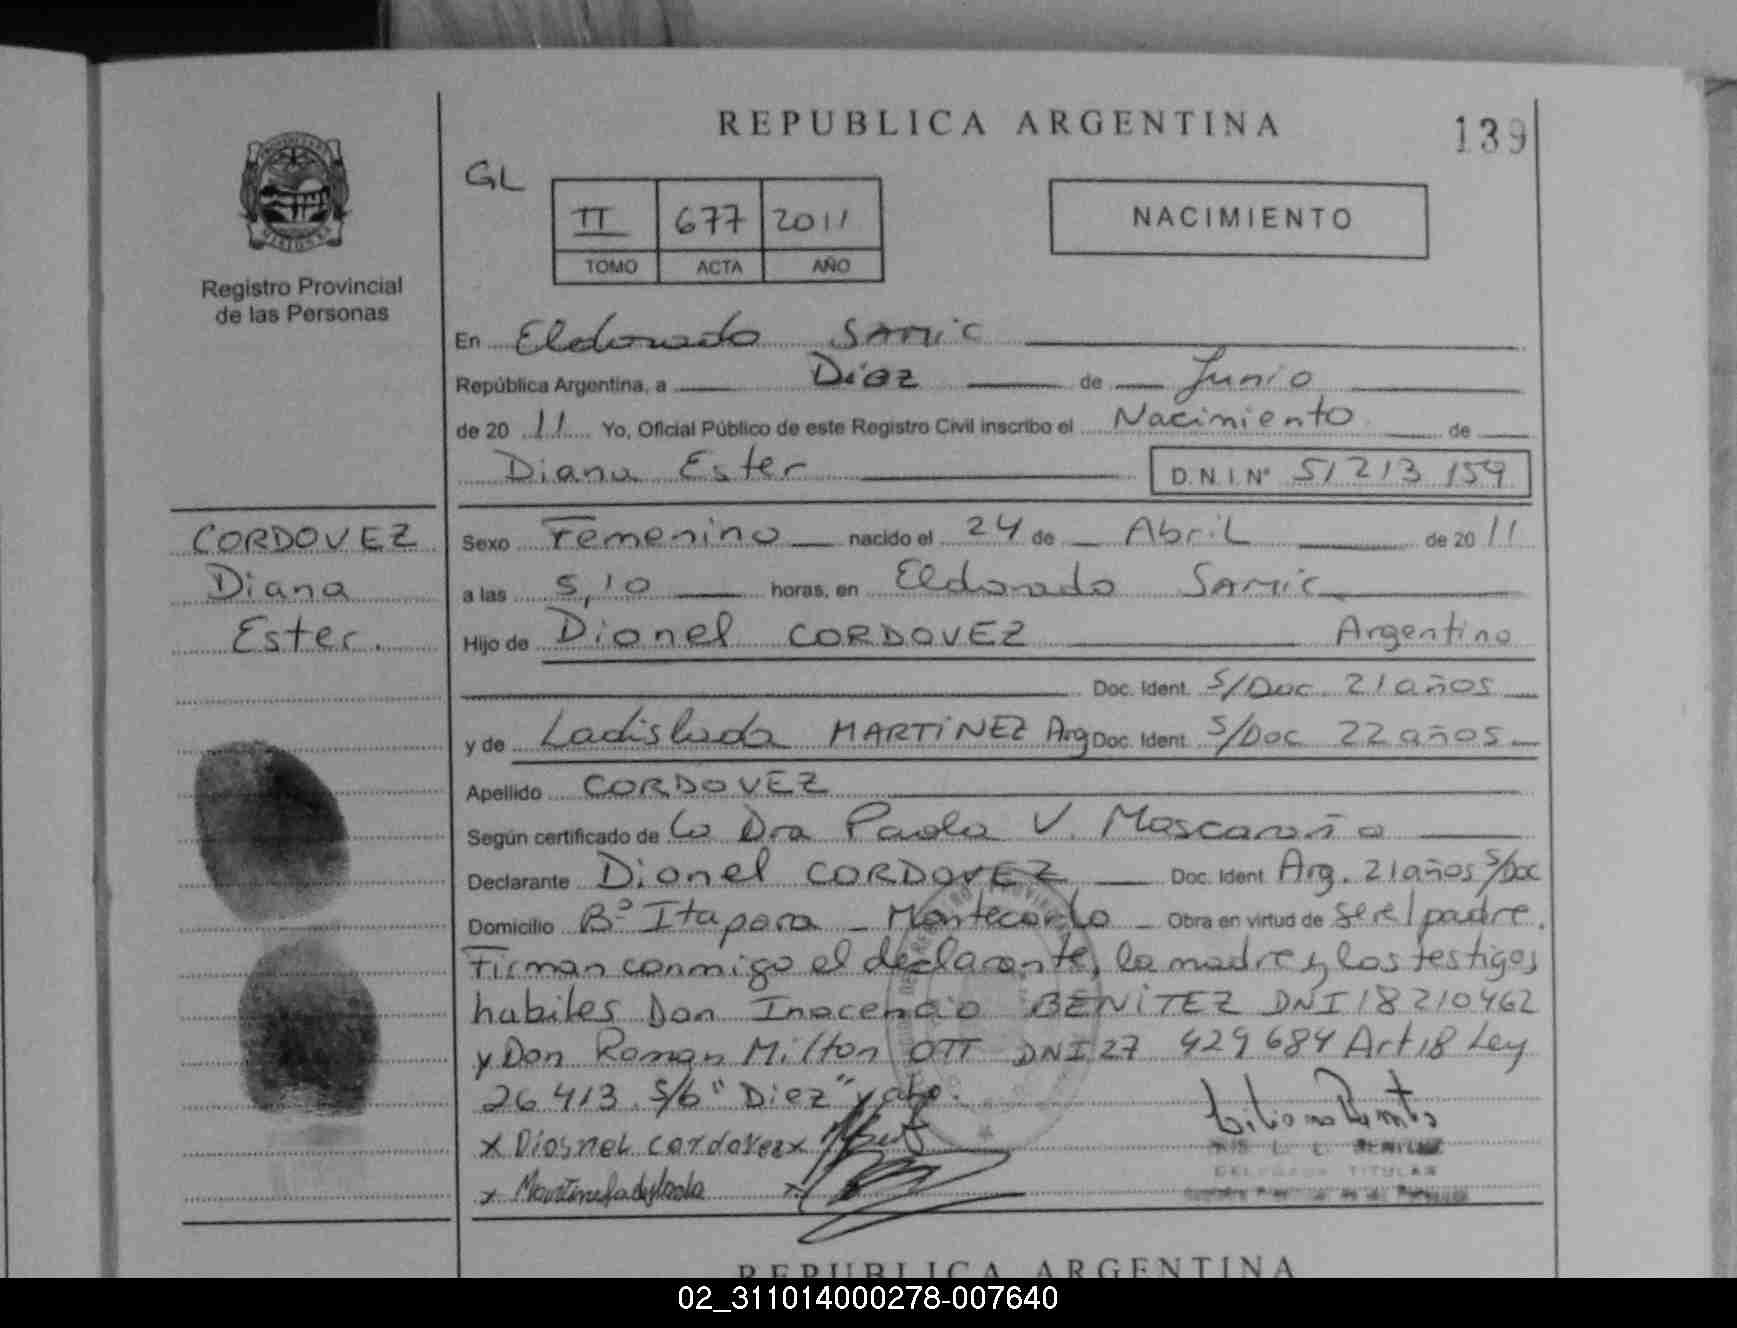 REPUBLICA ARGENTINA
139
GL
II 677 2011
TOMO ACTA AÑO
NACIMIENTO
Registro Provincial
de las Personas
En Eldorado SAMIC
República Argentina, a Diez de Junio
de 20 11 Yo, Oficial Público de este Registro Civil inscribo el Nacimiento de
Diana Ester D.N.I.N° 51 213 159
CORDOVEZ
Diana
Ester.
Sexo Femenino nacido el 24 de Abril de 20 11
a las 5,10 horas, en Eldorado SAMIC
Hijo de Dionel CORDOVEZ Argentino
Doc. Ident. S/Doc. 21 años
y de Ladislada MARTINEZ Arg Doc. Ident. S/Doc 22 años
Apellido CORDOVEZ
Según certificado de la Dra Paola V.
Declarante Dionel CORDOVEZ Doc. Ident. Arg. 21 años S/Doc
Domicilio B° Itapora - Montecarlo - Obra en virtud de ser el padre.
Firman conmigo el declarante, la madre y los testigos
habiles Don Inocencio BENITEZ DNI 18 210 462
y Don Roman Milton OTT DNI 27 429 684 Art 18 Ley
26 413. S/b "Diez"
x Diosnel cordovez x
x
DELEGADA TITULAR
REPUBLICA ARGENTINA
02_311014000278-007640